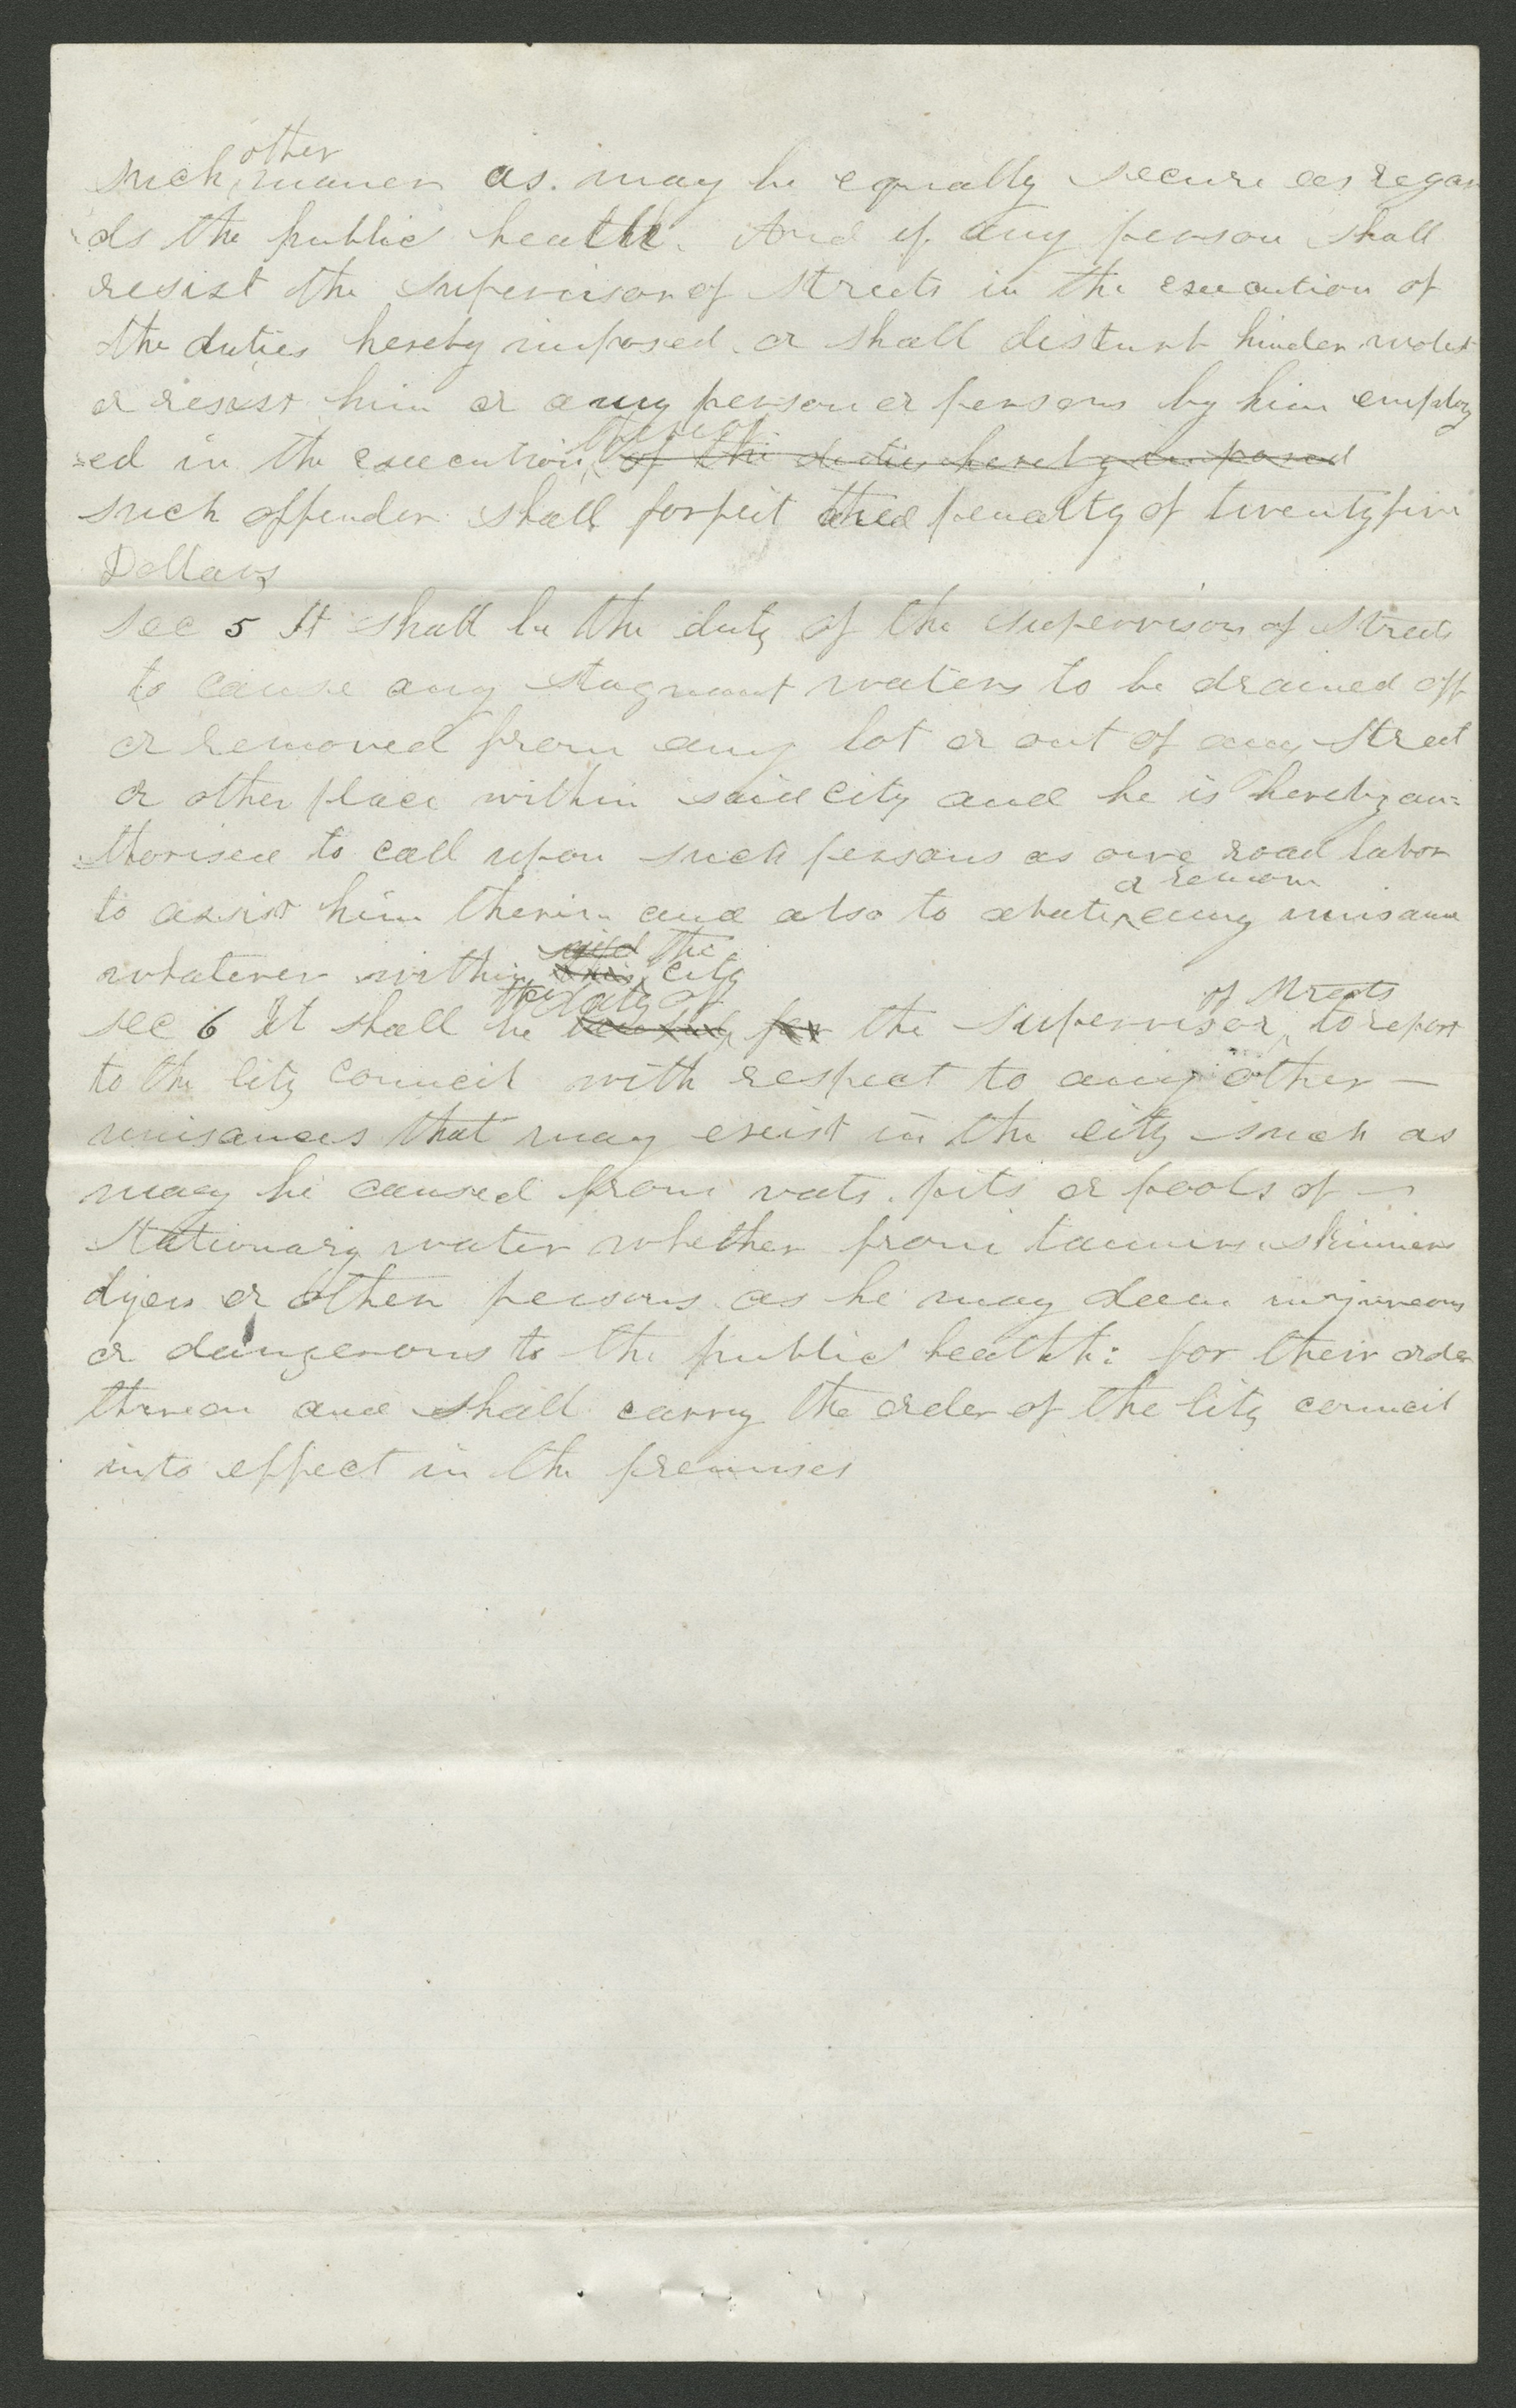 such other maner as may be equally secure as regar
ds the public health. And if any person shall
resist the supervisor of Streets in the execution of
the duties hereby imposed or shall disturb hinder molest
or resist him or any person or persons by him employ
=ed in the execution thereof of the duties hereby imposed
such offender shall forfeit the penalty of twenty five
Dollars
Sec 5 It shall be the duty of the supervisor of Streets
to cause any stagnant waters to be drained off
or removed from any lot or out of any Street
or other place within said City and he is hereby au=
thorised to call upon such persons as owe road labor
to assist him therein and also to abate or remove any nuisance
whatever within said this the City
Sec 6 It shall be the duty of for the Supervisor of Streets to report
to the City Council with respect to any other —
nuisances that may exist in the city such as
may be caused from vats. pits or pools of —
Stationary water whether from tanners skinners
dyers or other persons as he may deem injureous
or dangerous to the public health: for their order
thereon and shall carry the order of the City council
into effect in the premises